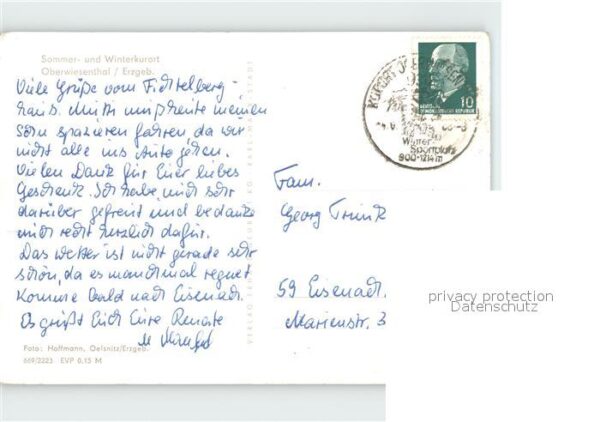 Sommer- und Winterkurort
Oberwiesenthal / Erzgeb.
Viele Grüße vom Fichtelberg-
haus. Mutti muß heute meinen
Sohn spazieren fahren, da wir
nicht alle ins Auto gehen.
Vielen Dank für Euer liebes
Geschenk. Ich habe mich sehr
darüber gefreut und bedanke
mich recht herzlich dafür.
Das Wetter ist nicht gerade sehr
schön, da es manchmal regnet
Komme bald nach Eisenach.
Es grüßt Euch Eure Renate
Foto: Hoffmann, Oelsnitz/Erzgeb.
669/2223 EVP 0,15 M
10
DEUTSCHE DEMOKRATISCHE REPUBLIK
KURORT
Winter-
Sportplatz
900-1214 m
Fam.
Georg
59 Eisenach.
Marienstr. 3
privacy protection
Datenschutz